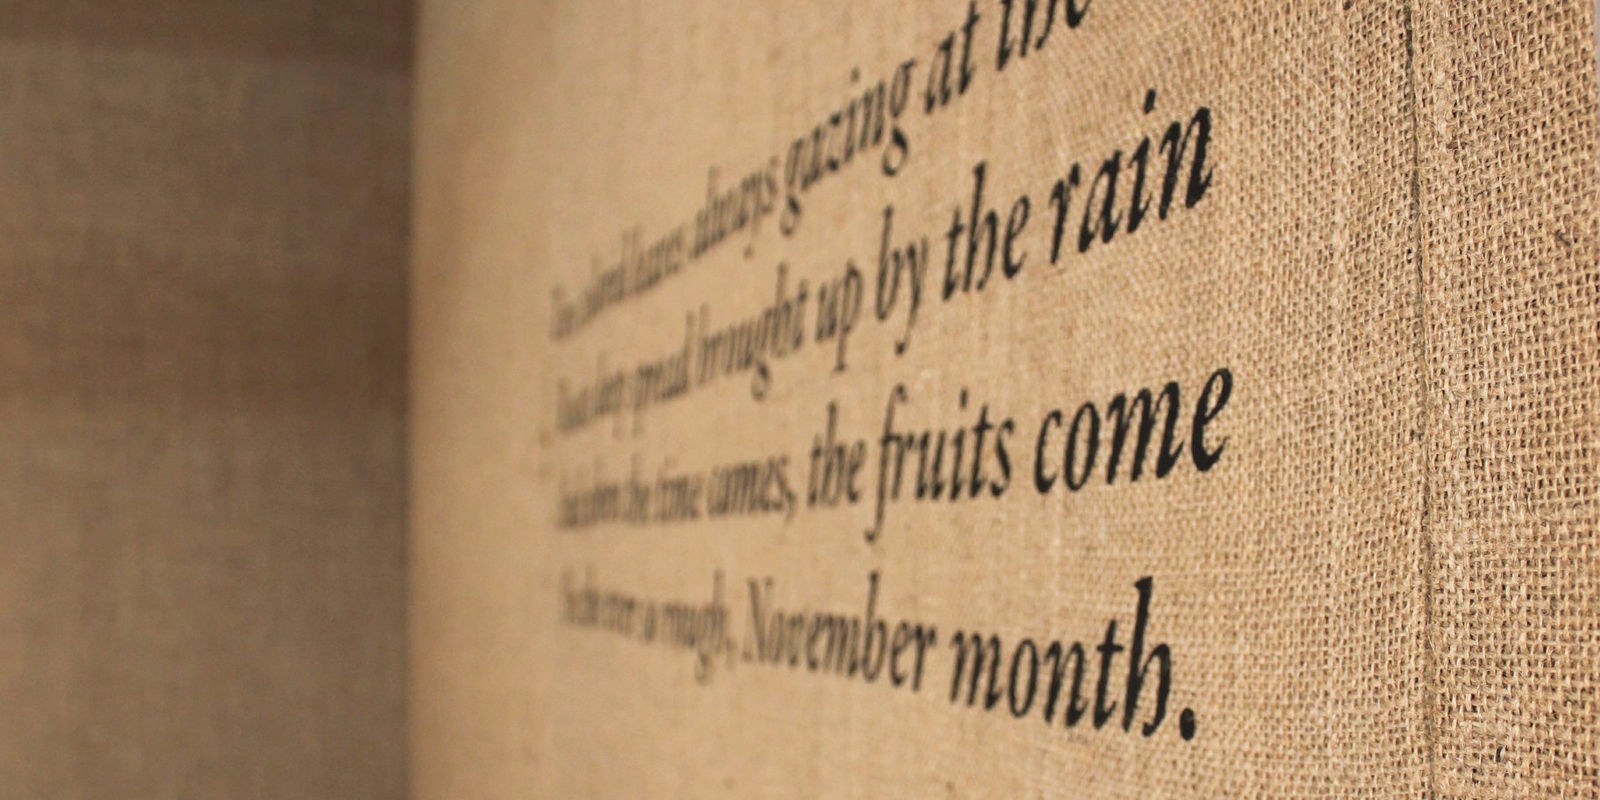 always gazing at the
spread brought up by the rain
the time comes, the fruits come
a rough, November month.